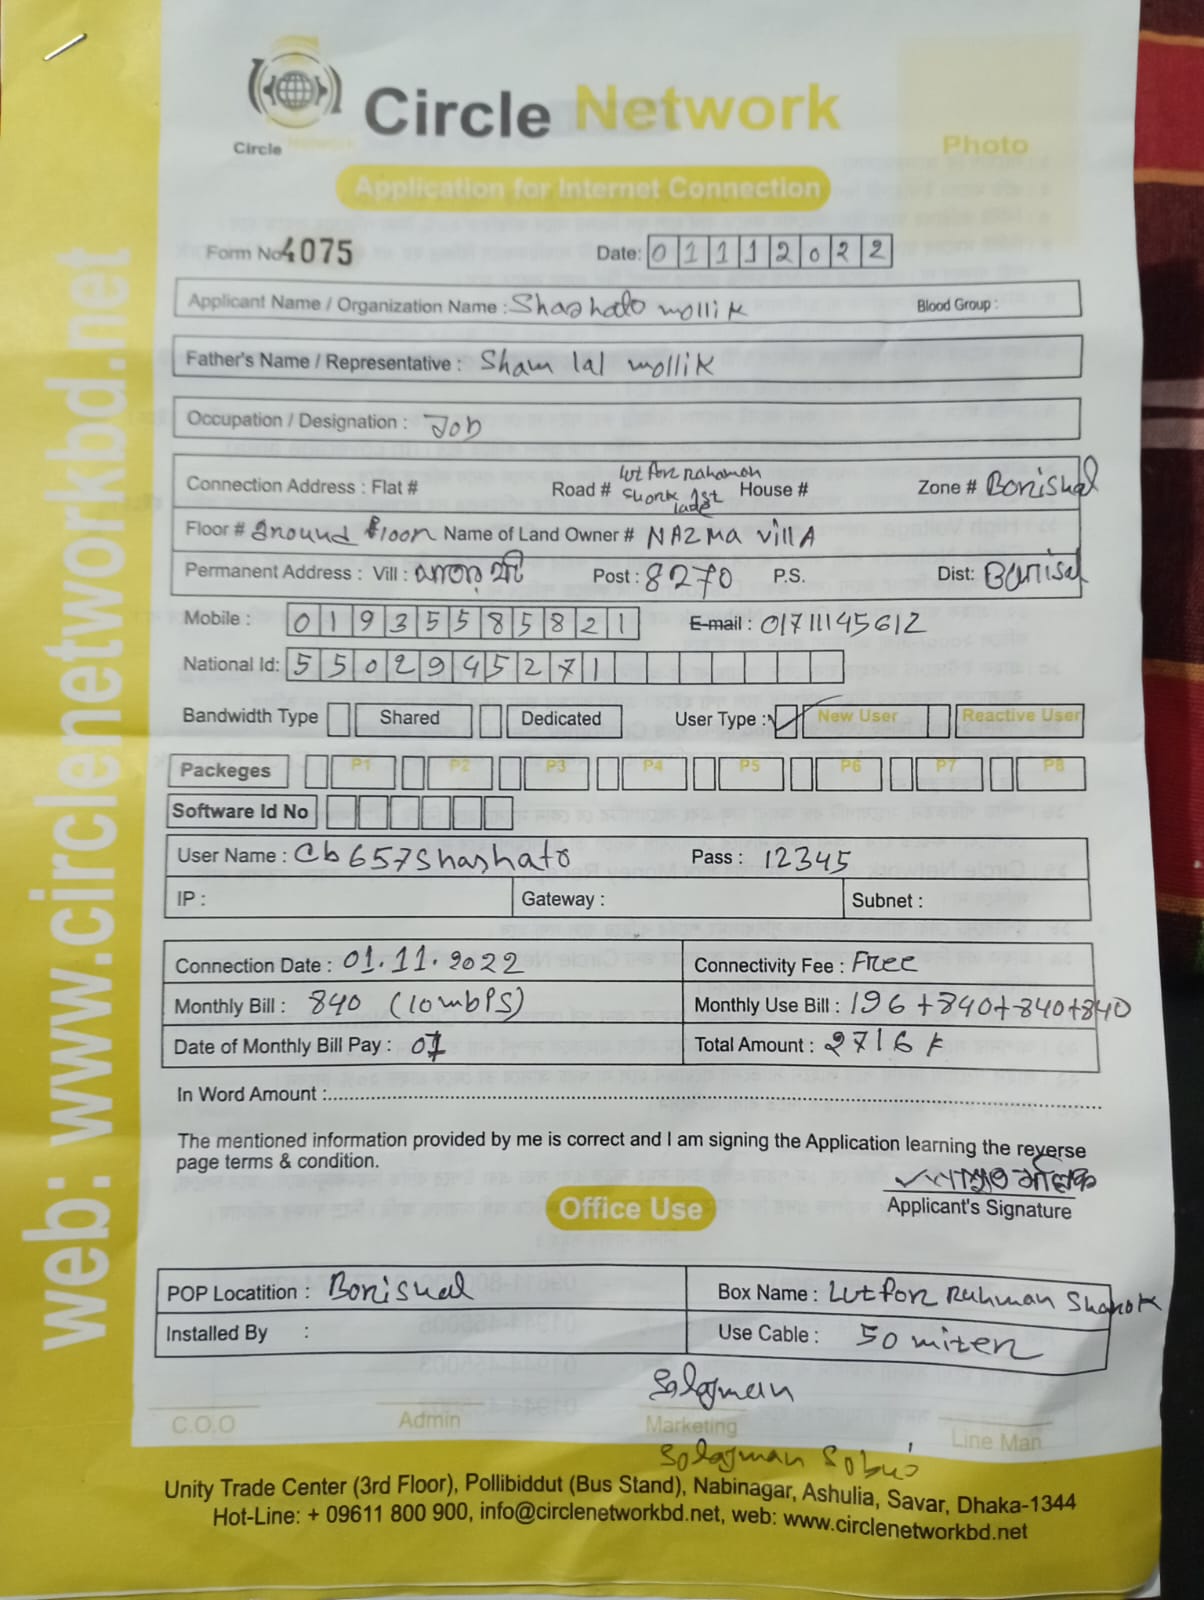 Circle Network
Circle Network
Photo
Application for Internet Connection
Form No 4075
Date: 01112022
Applicant Name / Organization Name : Shashato mollik
Blood Group :
Father's Name / Representative : Sham lal mollik
Occupation / Designation : Job
Connection Address : Flat # Road # lutfor rahaman House # Zone # Borishal
Floor # Ground floor Name of Land Owner # NAZMA VillA
Permanent Address : Vill : Post : 8270 P.S. Dist: Barisal
Mobile : 01935585821 E-mail : 01711145612
National Id: 5502945271
Bandwidth Type Shared Dedicated User Type : ✓ New User Reactive User
Packeges P1 P2 P3 P4 P5 P6 P7 P8
Software Id No
User Name : Cb657Shashato Pass : 12345
IP : Gateway : Subnet :
Connection Date : 01.11.2022 Connectivity Fee : Free
Monthly Bill : 840 (10mbPS) Monthly Use Bill : 196+840+840+840
Date of Monthly Bill Pay : 07 Total Amount : 2716
In Word Amount :
The mentioned information provided by me is correct and I am signing the Application learning the reverse
page terms & condition.
Applicant's Signature
Office Use
POP Locatition : Borishal Box Name : Lutfor Rahman Sharok
Installed By : Use Cable : 50 miter
Solayman
C.O.O Admin Marketing Line Man
Solayman
Unity Trade Center (3rd Floor), Pollibiddut (Bus Stand), Nabinagar, Ashulia, Savar, Dhaka-1344
Hot-Line: + 09611 800 900, info@circlenetworkbd.net, web: www.circlenetworkbd.net
web: www.circlenetworkbd.net